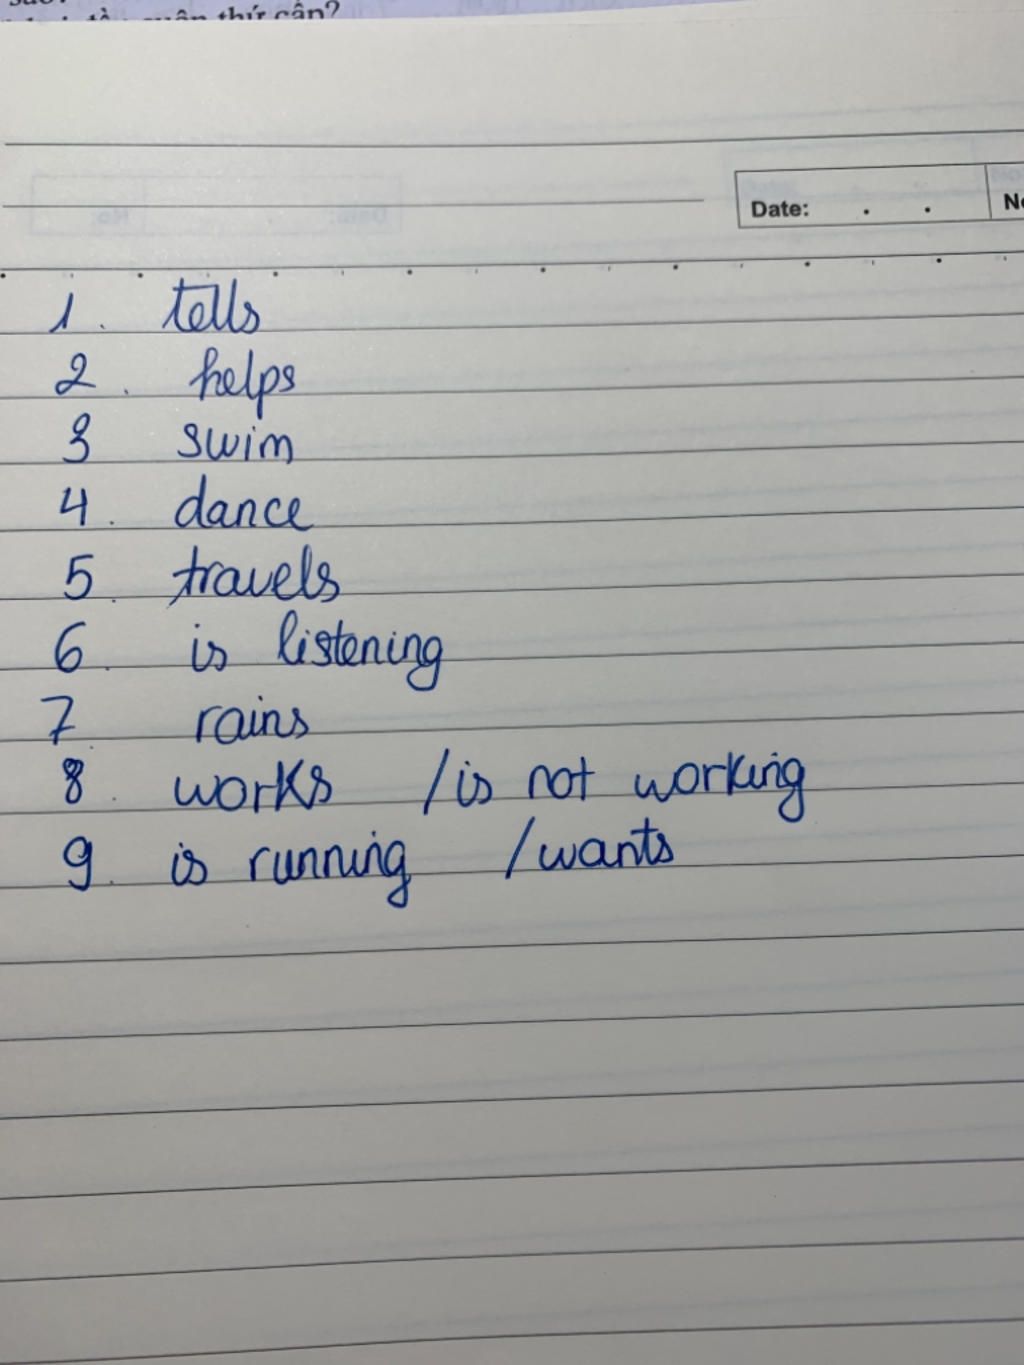 thứ cần?
Date: . . No
1. tells
2. helps
3 swim
4. dance
5. travels
6. is listening
7. rains
8. works / is not working
9. is running / wants